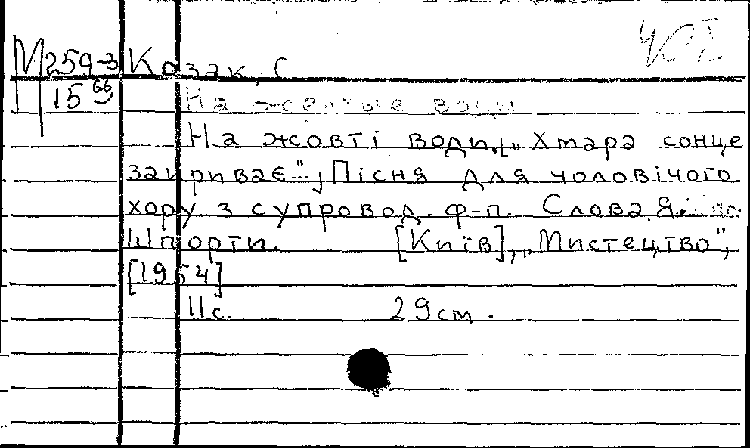 М259-3 Козак, С
15 66
На желтые воды
На жовті води. [„Хмара сонце
закриває"; Пісня для чоловічого
хору з супровод. ф-п. Слова Я.
Шпорти. [Київ], „Мистецтво",
[1954]
11с. 29см.